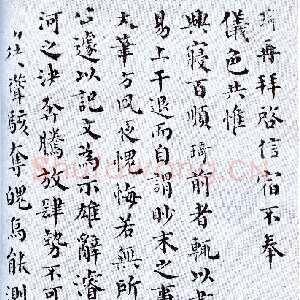 琦再拜啓信宿不奉
儀色共惟
興寢百順琦前者輒以
易上干退而自謂眇末之事
大筆方夙夜愧悔若無所
公遽以記文為示雄辭濬
河之決奔騰放肆勢不可
聳駭奪魄烏能測